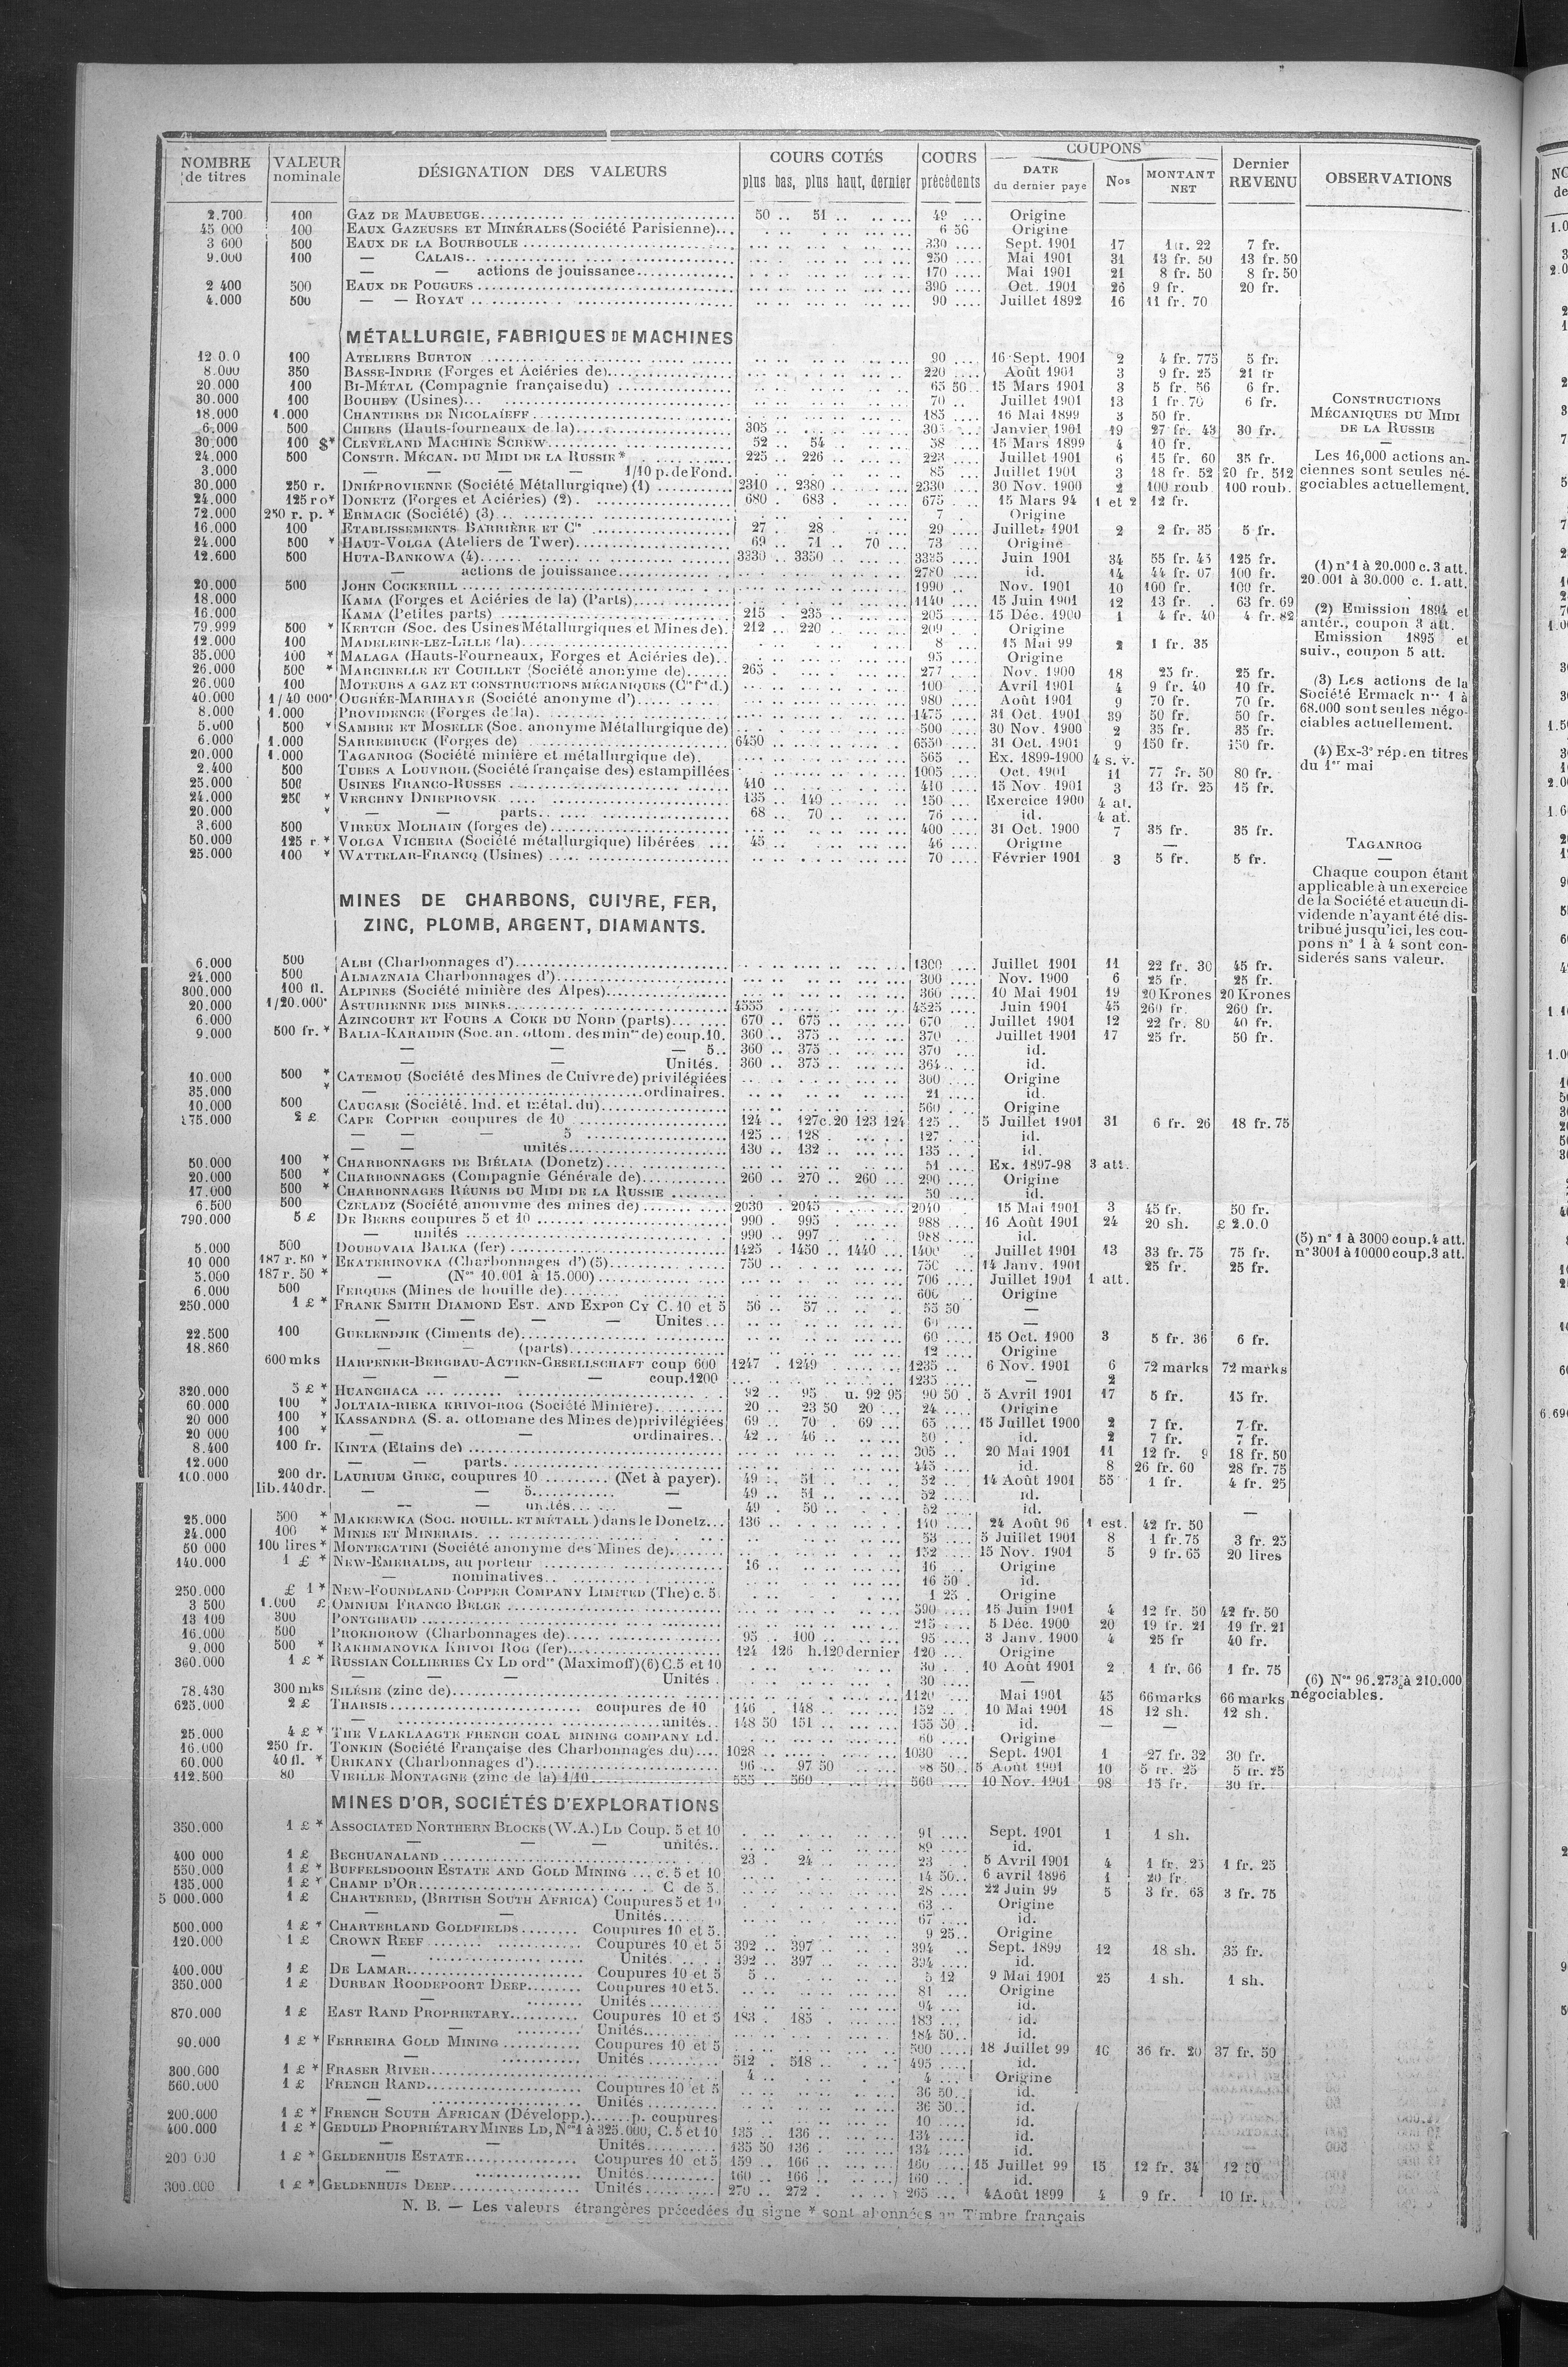 NOMBRE de titres | VALEUR nominale | DÉSIGNATION DES VALEURS | COURS COTÉS plus bas, plus haut, dernier | COURS précédents | COUPONS DATE du dernier paye | Nos | MONTANT NET | Dernier REVENU | OBSERVATIONS
2.700 100 GAZ DE MAUBEUGE 50 .. 51 .. 49 Origine
45 000 100 EAUX GAZEUSES ET MINÉRALES (Société Parisienne) 6 50 Origine
3 600 500 EAUX DE LA BOURBOULE 330 Sept. 1901 17 22 7 fr.
9.000 100 — CALAIS 250 Mai 1901 31 13 fr. 50 13 fr. 50
— — actions de jouissance 170 Mai 1901 21 8 fr. 50 8 fr. 50
2 400 500 EAUX DE POUGUES 390 Oct. 1901 26 9 fr. 20 fr.
4.000 500 — — ROYAT 90 Juillet 1892 16 11 fr. 70
MÉTALLURGIE, FABRIQUES DE MACHINES
12 0.0 100 ATELIERS BURTON 90 16 Sept. 1901 2 4 fr. 775 5 fr.
8.000 350 BASSE-INDRE (Forges et Aciéries de) 220 Août 1901 3 9 fr. 25 21 fr
20.000 100 BI-MÉTAL (Compagnie française du) 65 50 15 Mars 1901 3 5 fr. 56 6 fr.
30.000 100 BOUHEY (Usines) 70 Juillet 1901 13 1 fr. 70 6 fr.
18.000 1.000 CHANTIERS DE NICOLAÏEFF 185 16 Mai 1899 3 50 fr.
6.000 500 CHIERS (Hauts-fourneaux de la) 305 Janvier 1901 19 27 fr. 43 30 fr.
30.000 100 $* CLEVELAND MACHINE SCREW 52 54 58 15 Mars 1899 4 10 fr.
24.000 500 CONSTR. MÉCAN. DU MIDI DE LA RUSSIE * 225 .. 226 223 Juillet 1901 6 15 fr. 60 35 fr.
3.000 — — — — 1/10 p. de Fond. 85 Juillet 1901 3 18 fr. 52 20 fr. 512
30.000 250 r. DNIÉPROVIENNE (Société Métallurgique) (1) 2310 .. 2380 2330 30 Nov. 1900 2 100 roub. 100 roub.
24.000 125 ro* DONETZ (Forges et Aciéries) (2) 680 . 683 675 15 Mars 94 1 et 2 12 fr.
72.000 250 r. p. * ERMACK (Société) (3) 7 Origine
16.000 100 ETABLISSEMENTS BARRIÈRE ET Cie 27 28 29 Juillet 1901 2 2 fr. 35 5 fr.
24.000 500 * HAUT-VOLGA (Ateliers de Twer) 69 71 70 73 Origine
12.600 500 HUTA-BANKOWA (4) 3330 .. 3350 3335 Juin 1901 34 55 fr. 45 125 fr.
— actions de jouissance 2780 id. 14 44 fr. 07 100 fr.
20.000 500 JOHN COCKERILL 1990 Nov. 1901 10 100 fr. 100 fr.
18.000 KAMA (Forges et Aciéries de la) (Parts) 1140 15 Juin 1901 12 13 fr. 63 fr. 69
16.000 KAMA (Petites parts) 215 .. 235 205 15 Déc. 1900 1 4 fr. 40 4 fr. 82
79.999 500 * KERTCH (Soc. des Usines Métallurgiques et Mines de) 212 .. 220 209 Origine
12.000 100 MADELEINE-LEZ-LILLE (la) 8 15 Mai 99 2 1 fr. 35
35.000 100 * MALAGA (Hauts-Fourneaux, Forges et Aciéries de) 95 Origine
26.000 500 * MARCINELLE ET COUILLET (Société anonyme de) 265 277 Nov. 1900 18 25 fr. 25 fr.
26.000 100 MOTEURS A GAZ ET CONSTRUCTIONS MÉCANIQUES (Cie fse d.) 100 Avril 1901 4 9 fr. 40 10 fr.
40.000 1/40 000e OUGRÉE-MARIHAYE (Société anonyme d') 980 Août 1901 9 70 fr. 70 fr.
8.000 1.000 PROVIDENCE (Forges de la) 1475 31 Oct. 1901 39 50 fr. 50 fr.
5.000 500 * SAMBRE ET MOSELLE (Soc. anonyme Métallurgique de) 500 30 Nov. 1900 2 35 fr. 35 fr.
6.000 1.000 SARREBRUCK (Forges de) 6450 6550 31 Oct. 1901 9 150 fr. 150 fr.
20.000 1.000 TAGANROG (Société minière et métallurgique de) 565 Ex. 1899-1900 4 s. v.
2.400 500 TUBES A LOUVROIL (Société française des) estampillées 1005 Oct. 1901 11 77 fr. 50 80 fr.
25.000 500 USINES FRANCO-RUSSES 410 410 15 Nov. 1901 3 13 fr. 25 15 fr.
24.000 250 * VERCHNY DNIEPROVSK 135 .. 149 150 Exercice 1900 4 at.
20.000 * — — parts 68 .. 70 76 id. 4 at.
3.600 500 VIREUX MOLHAIN (forges de) 400 31 Oct. 1900 7 35 fr. 35 fr.
50.000 125 r. * VOLGA VICHERA (Société métallurgique) libérées 45 46 Origine —
25.000 100 * WATTELAR-FRANCQ (Usines) 70 Février 1901 3 5 fr. 5 fr.
CONSTRUCTIONS
MÉCANIQUES DU MIDI
DE LA RUSSIE
—
Les 16,000 actions an-
ciennes sont seules né-
gociables actuellement.
(1) n° 1 à 20.000 c. 3 att.
20.001 à 30.000 c. 1. att.
(2) Emission 1894 et
antér., coupon 3 att.
Emission 1895 et
suiv., coupon 5 att.
(3) Les actions de la
Société Ermack nos 1 à
68.000 sont seules négo-
ciables actuellement.
(4) Ex-3e rép. en titres
du 1er mai
TAGANROG
—
Chaque coupon étant
applicable à un exercice
de la Société et aucun di-
vidende n'ayant été dis-
tribué jusqu'ici, les cou-
pons n° 1 à 4 sont con-
siderés sans valeur.
MINES DE CHARBONS, CUIVRE, FER,
ZINC, PLOMB, ARGENT, DIAMANTS.
6.000 500 ALBI (Charbonnages d') 1300 Juillet 1901 11 22 fr. 30 45 fr.
24.000 500 ALMAZNAIA Charbonnages d') 300 Nov. 1900 6 25 fr. 25 fr.
300.000 100 fl. ALPINES (Société minière des Alpes) 360 10 Mai 1901 19 20 Krones 20 Krones
20.000 1/20.000e ASTURIENNE DES MINES 4555 4525 Juin 1901 45 260 fr. 260 fr.
6.000 AZINCOURT ET FOURS A COKE DU NORD (parts) 670 .. 675 670 Juillet 1901 12 22 fr. 80 40 fr.
9.000 500 fr. * BALIA-KARAIDIN (Soc. an. ottom. des mines de) coup. 10. 360 .. 375 370 Juillet 1901 17 25 fr. 50 fr.
— — — 5 360 .. 375 370 id.
— — Unités. 360 .. 375 364 id.
10.000 500 * CATEMOU (Société des Mines de Cuivre de) privilégiées 300 Origine
35.000 * — ordinaires. 21 id.
10.000 500 CAUCASE (Société. Ind. et métal. du) 560 Origine
175.000 2 £ CAPE COPPER coupures de 10 124 .. 127 c. 20 123 124 125 5 Juillet 1901 31 6 fr. 26 18 fr. 75
— — — 5 125 .. 128 127 id.
— — unités 130 .. 132 135 id.
50.000 100 * CHARBONNAGES DE BIÉLAIA (Donetz) 51 Ex. 1897-98 3 att.
20.000 500 * CHARBONNAGES (Compagnie Générale de) 260 .. 270 .. 260 290 Origine
17.000 500 * CHARBONNAGES RÉUNIS DU MIDI DE LA RUSSIE 50 id.
6.500 500 CZELADZ (Société anonyme des mines de) 2030 . 2045 2040 15 Mai 1901 3 45 fr. 50 fr.
790.000 5 £ DE BEERS coupures 5 et 10 990 . 995 988 16 Août 1901 24 20 sh. £ 2.0.0
— unités 990 .. 997 988 id.
5.000 500 DOUBOVAIA BALKA (fer) 1425 . 1450 .. 1440 1400 Juillet 1901 13 33 fr. 75 75 fr.
10 000 187 r. 50 * EKATERINOVKA (Charbonnages d') (5) 750 750 14 Janv. 1901 25 fr. 25 fr.
5.000 187 r. 50 * — (Nos 10.001 à 15.000) 706 Juillet 1901 1 att.
6.000 500 FERQUES (Mines de houille de) 600 Origine
250.000 1 £ * FRANK SMITH DIAMOND EST. AND EXPon CY C. 10 et 5 56 .. 57 55 50 —
— — — — Unites 60 —
22.500 100 GUELENDJIK (Ciments de) 60 15 Oct. 1900 3 5 fr. 36 6 fr.
18.860 — — (parts) 12 Origine
600 mks HARPENER-BERGBAU-ACTIEN-GESELLSCHAFT coup 600 1247 . 1249 1235 6 Nov. 1901 6 72 marks 72 marks
— — — — coup. 1200 1235 — 2
320.000 5 £ * HUANCHACA 92 .. 95 u. 92 95 90 50 5 Avril 1901 17 5 fr. 15 fr.
60.000 100 * JOLTAIA-RIEKA KRIVOI-ROG (Société Minière) 20 .. 23 50 20 24 Origine
20 000 100 * KASSANDRA (S. a. ottomane des Mines de) privilégiées 69 .. 70 . 69 65 15 Juillet 1900 2 7 fr. 7 fr.
20 000 100 * — — ordinaires 42 .. 46 50 id. 2 7 fr. 7 fr.
8.400 100 fr. KINTA (Etains de) 305 20 Mai 1901 11 12 fr. 9 18 fr. 50
12.000 — — parts 445 id. 8 26 fr. 60 28 fr. 75
100.000 200 dr. LAURIUM GREC, coupures 10 (Net à payer). 49 .. 51 52 14 Août 1901 55 1 fr. 4 fr. 25
lib. 140 dr. — — 5 — 49 .. 51 52 id.
— — unités — 49 . 50 52 id. —
25.000 500 * MAKEEWKA (SOC. HOUILL. ET MÉTALL ) dans le Donetz 136 140 24 Août 96 1 est. 42 fr. 50
24.000 100 * MINES ET MINERAIS 53 5 Juillet 1901 8 1 fr. 75 3 fr. 25
50 000 100 lires * MONTECATINI (Société anonyme des Mines de) 152 15 Nov. 1901 5 9 fr. 65 20 lires
140.000 1 £ * NEW-EMERALDS, au porteur 16 16 Origine
— nominatives 16 50 id.
250.000 £ 1 * NEW-FOUNDLAND COPPER COMPANY LIMITED (The) c. 5 1 25 Origine
3 500 1.000 £ OMNIUM FRANCO BELGE 590 15 Juin 1901 4 12 fr. 50 42 fr. 50
13 100 300 PONTGIBAUD 215 5 Déc. 1900 20 19 fr. 21 19 fr. 21
16.000 500 PROKHOROW (Charbonnages de) 95 . 100 95 3 Janv. 1900 4 25 fr 40 fr.
9.000 500 * RAKHMANOVKA KRIVOI ROG (fer) 124 126 h. 120 dernier 120 Origine
360.000 1 £ * RUSSIAN COLLIERIES CY LD ordres (Maximoff) (6) C. 5 et 10 30 10 Août 1901 2 1 fr. 66 1 fr. 75
— — — Unités 30 —
78.430 300 mks SILÉSIE (zinc de) 1120 Mai 1901 45 66 marks 66 marks
625.000 2 £ THARSIS coupures de 10 146 . 148 152 10 Mai 1901 18 12 sh. 12 sh.
— unités 148 50 151 155 50 id. — —
25.000 4 £ * THE VLAKLAAGTE FRENCH COAL MINING COMPANY LD. 60 Origine
16.000 250 fr. TONKIN (Société Française des Charbonnages du) 1028 1030 Sept. 1901 1 27 fr. 32 30 fr.
60.000 40 fl. * URIKANY (Charbonnages d') 96 .. 97 50 98 50 5 Août 1901 10 5 fr. 25 5 fr. 25
112.500 80 VIEILLE MONTAGNE (zinc de la) 1/10 555 .. 560 560 10 Nov. 1901 98 15 fr. 30 fr.
(5) n° 1 à 3000 coup. 4 att.
n° 3001 à 10000 coup. 3 att.
(6) Nos 96.273 à 210.000
négociables.
MINES D'OR, SOCIÉTÉS D'EXPLORATIONS
350.000 1 £ * ASSOCIATED NORTHERN BLOCKS (W.A.) LD Coup. 5 et 10 91 Sept. 1901 1 1 sh.
— — — unités 89 id.
400 000 1 £ BECHUANALAND 23 . 24 23 5 Avril 1901 4 1 fr. 25 1 fr. 25
550.000 1 £ * BUFFELSDOORN ESTATE AND GOLD MINING c. 5 et 10 14 50 6 avril 1896 1 20 fr.
135.000 1 £ * CHAMP D'OR C de 5 28 22 Juin 99 5 3 fr. 63 3 fr. 75
5 000.000 1 £ CHARTERED, (BRITISH SOUTH AFRICA) Coupures 5 et 10 63 Origine
— — Unités 67 id.
500.000 1 £ * CHARTERLAND GOLDFIELDS Coupures 10 et 5 9 25 Origine
120.000 1 £ CROWN REEF Coupures 10 et 5 392 .. 397 394 Sept. 1899 12 18 sh. 35 fr.
— Unités 392 .. 397 394 id.
400.000 1 £ DE LAMAR Coupures 10 et 5 5 5 12 9 Mai 1901 25 1 sh. 1 sh.
350.000 1 £ DURBAN ROODEPOORT DEEP Coupures 10 et 5. 81 Origine
— Unités 94 id.
870.000 1 £ EAST RAND PROPRIETARY Coupures 10 et 5 183 . 185 183 id.
— Unités 184 50 id.
90.000 1 £ * FERREIRA GOLD MINING Coupures 10 et 5 500 18 Juillet 99 16 36 fr. 20 37 fr. 50
— Unités 512 . 518 495 id.
300.000 1 £ * FRASER RIVER 4 4 Origine
560.000 1 £ FRENCH RAND Coupures 10 et 5 36 50 id.
— Unités 36 50 id.
200.000 1 £ * FRENCH SOUTH AFRICAN (Développ.) p. coupures 10 id.
400.000 1 £ * GEDULD PROPRIÉTARY MINES LD, Nos 1 à 325.000, C. 5 et 10 135 .. 136 134 id.
— — Unités 135 50 136 134 id.
200 000 1 £ * GELDENHUIS ESTATE Coupures 10 et 5 159 .. 166 160 15 Juillet 99 15 12 fr. 34 12 50
— Unités 160 .. 166 160 id.
300.000 1 £ * GELDENHUIS DEEP Unités 270 .. 272 265 4 Août 1899 4 9 fr. 10 fr.
N. B. — Les valeurs étrangères précedées du signe * sont abonnées au Timbre français